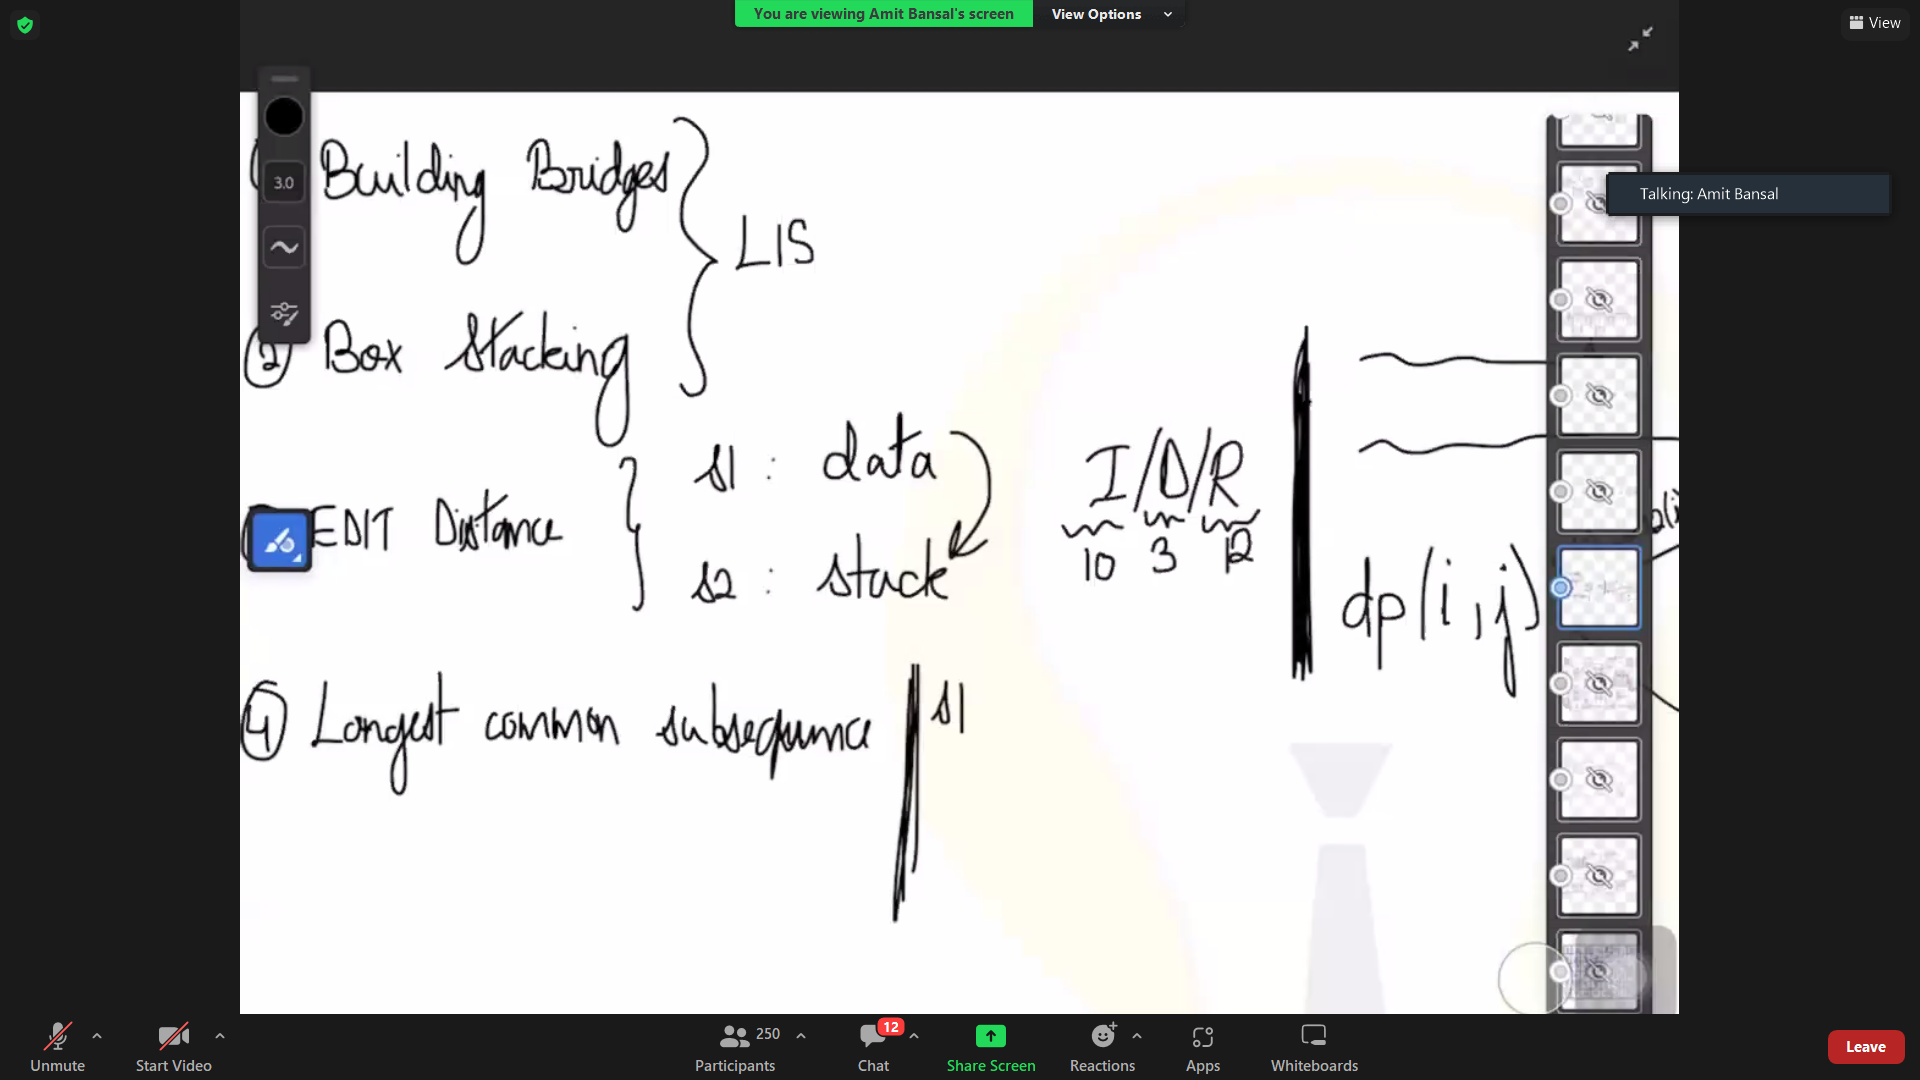 You are viewing Amit Bansal's screen
View Options
View
Talking: Amit Bansal
3.0
Building Bridges
LIS
② Box Stacking
s1 : data
I/D/R
10 3 12
EDIT Distance
s2 : stack
dp(i,j)
④ Longest common subsequence
s1
Unmute
Start Video
250
Participants
12
Chat
Share Screen
Reactions
Apps
Whiteboards
Leave